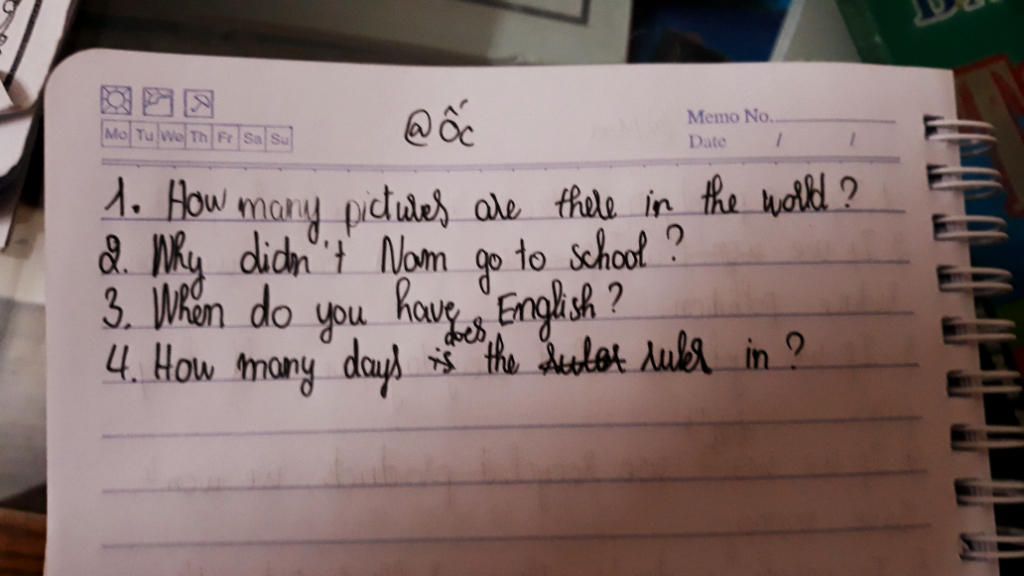 Mo Tu We Th Fr Sa Su
@ Ốc
Memo No.
Date / /
1. How many pictures are there in the world?
2. Why didn't Nam go to school?
3. When do you have English?
does
4. How many days is the ruler in?